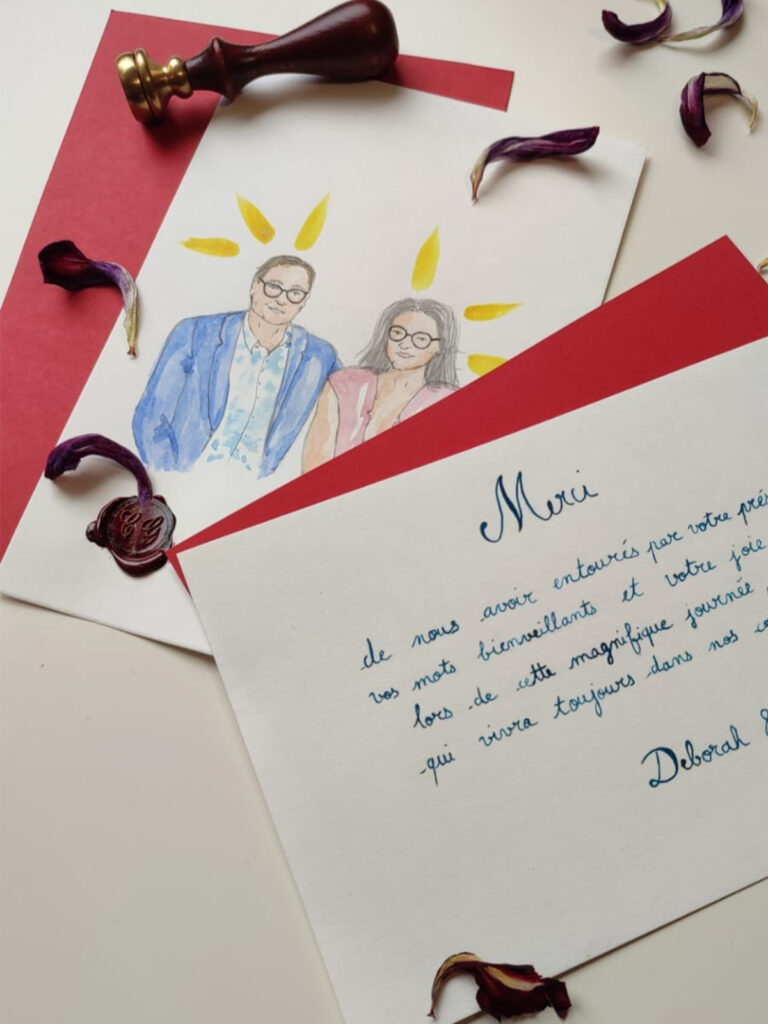 Merci
de nous avoir entourés par votre
vos mots bienveillants et votre joie
lors de cette magnifique journée
qui vivra toujours dans nos
Deborah &